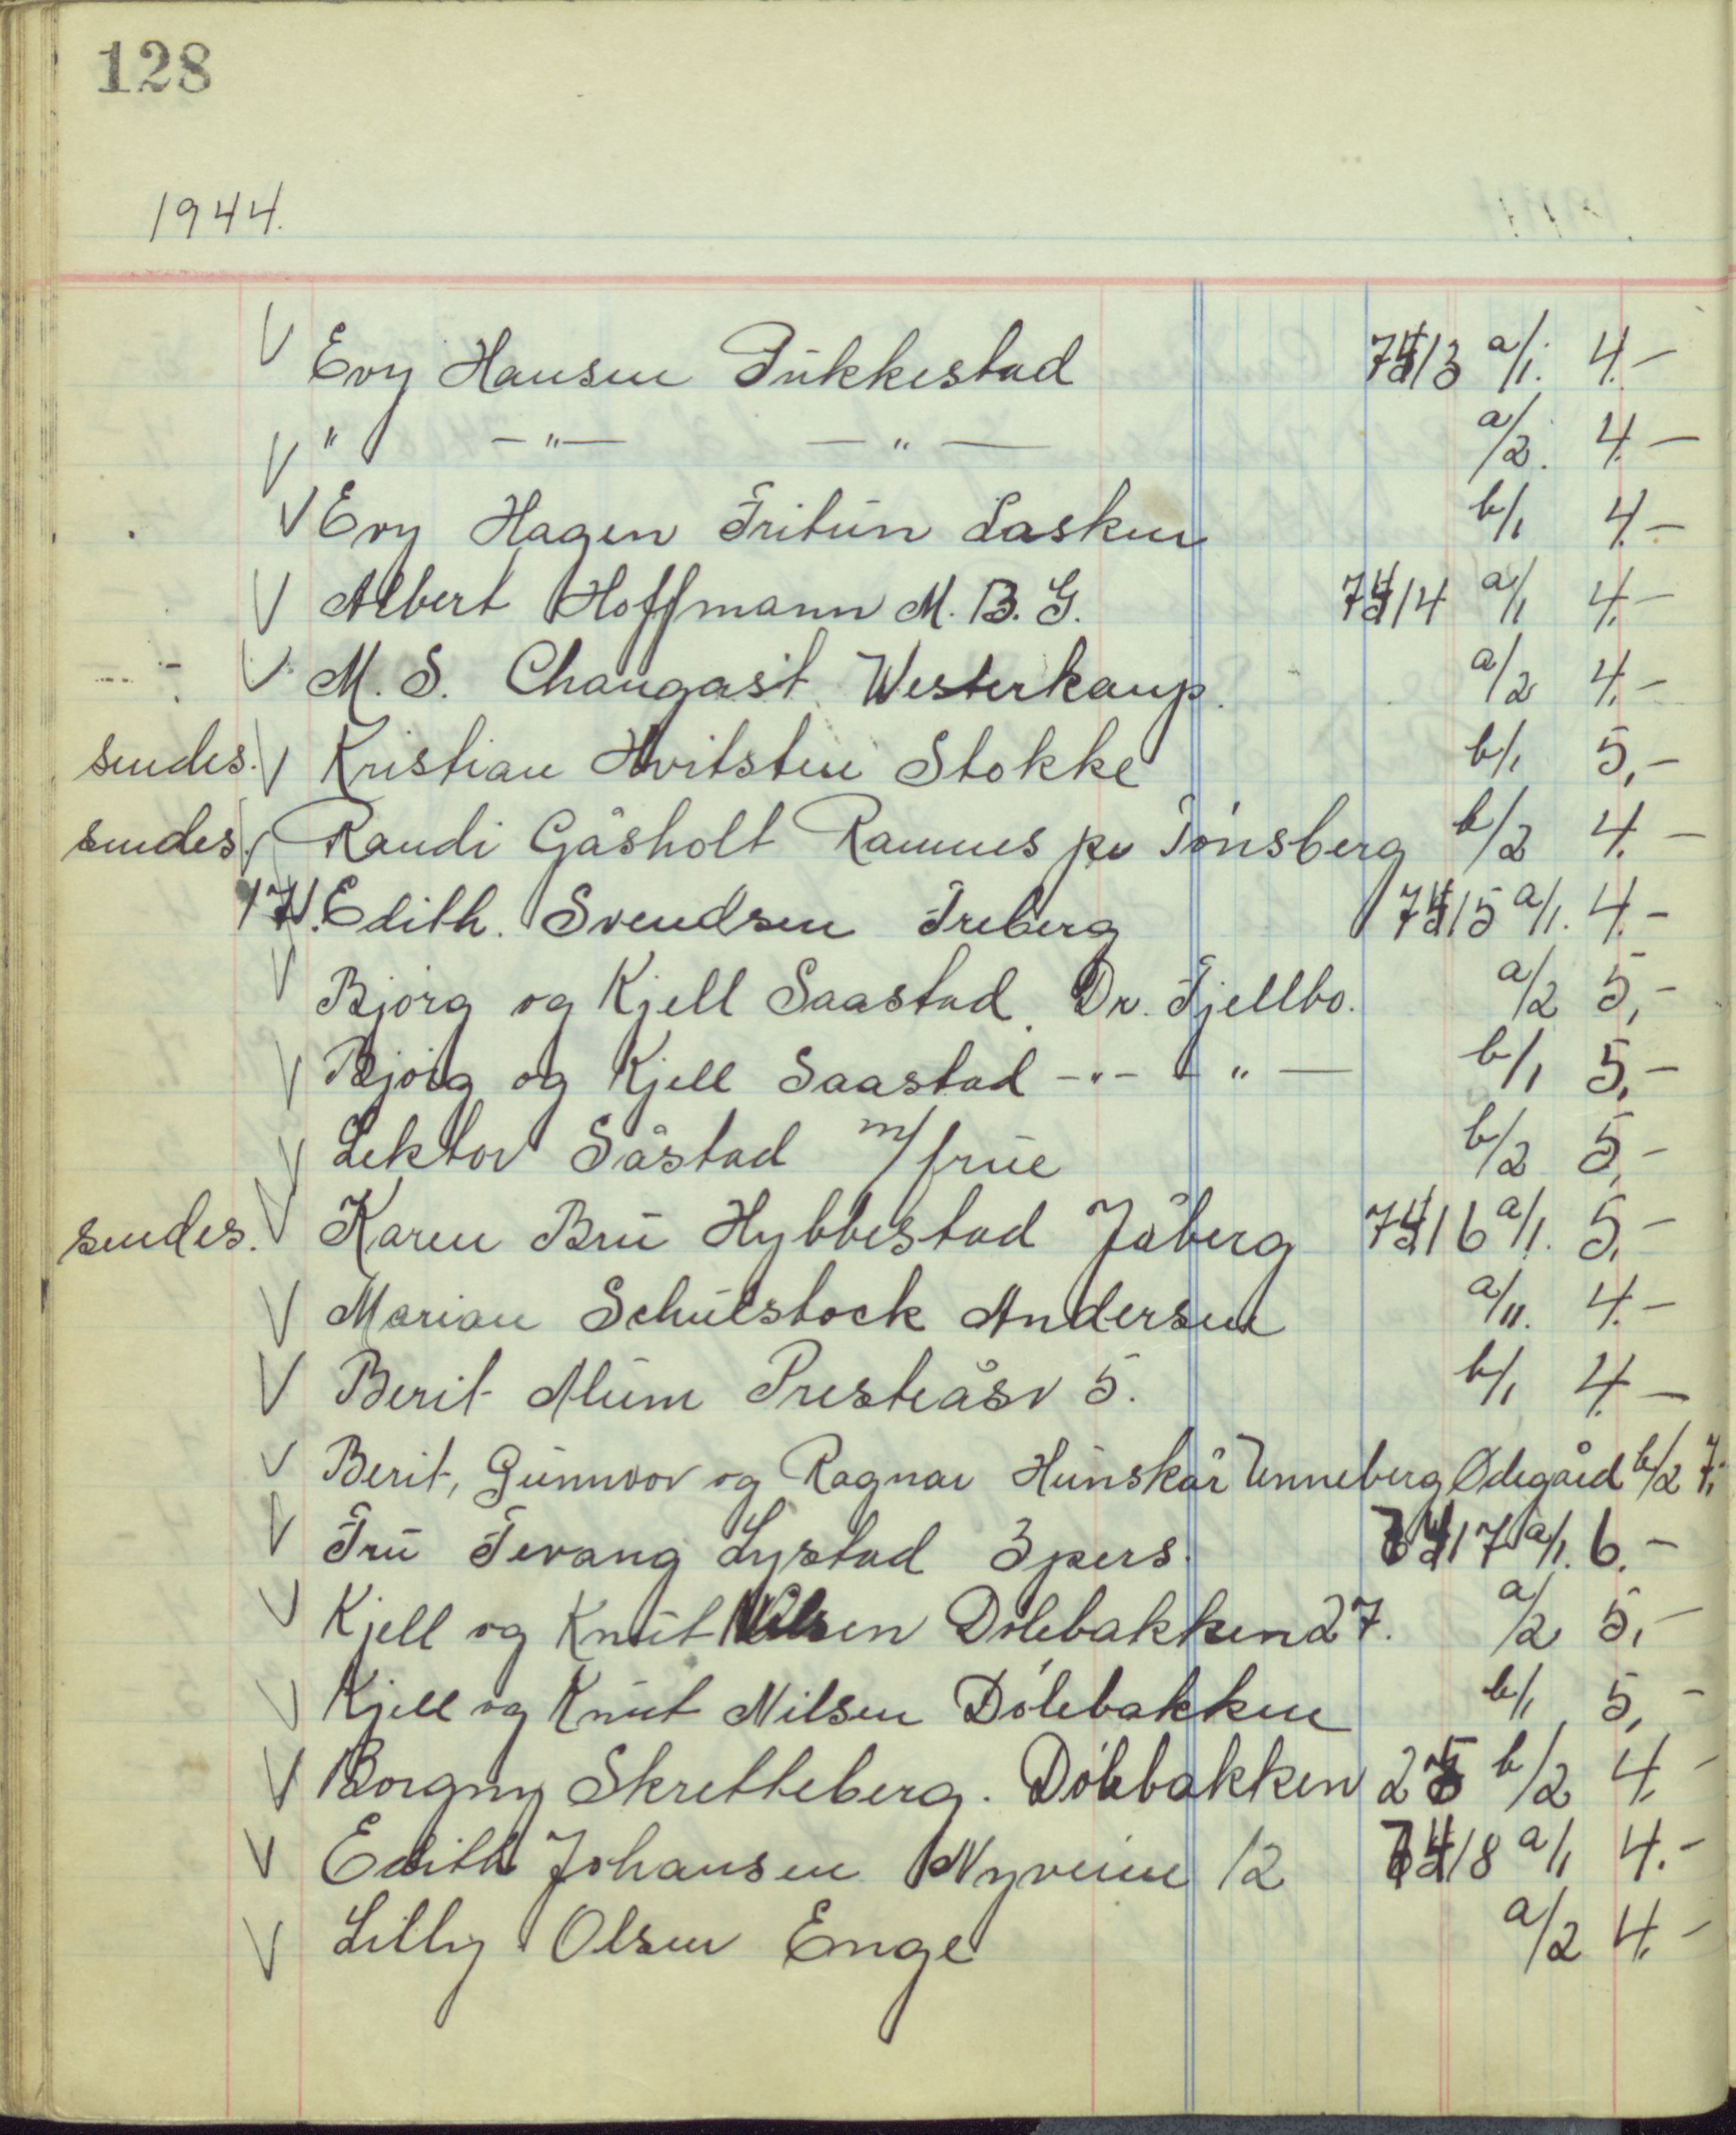 128
1944.
V Evy Hansen Pükkestad 7413 a/1. 4.-
V " -"- -"- a/2. 4.-
V Evy Hagen Fritün Lasken b/1 4.-
V Albert Hoffmann M. B. G. 7414 a/1 4.-
V M. S. Changast Westerkamp. a/2 4.-
sendes. V Kristian Hvitsten Stokke b/1 5,-
sendes. V Randi Gåsholt Ramnes pr Tönsberg b/2 4.-
17/1. Edith. Svendsen Freberg 7415 a/1. 4.-
V Bjørg og Kjell Saastad. Dr. Fjellbo. a/2 5,-
V Bjørg og Kjell Saastad -"- -"- b/1 5,-
V Lektor Såstad m/früe b/2 5,-
sendes. V Karen Brü Hybbestad Jåberg 7416 a/1. 5,-
V Marian Schülstock Andersen a/11. 4.-
V Berit Alüm Presteåsv 5. b/1 4.-
V Berit, Günnvor og Ragnar Hünskår Unneberg Ødegård b/2 7,-
V Frü Tevang Lystad 3 pers. 7417 a/1. 6.-
V Kjell og Knüt Nilsen Dölebakken 27. a/2 5,-
V Kjell og Knüt Nilsen Dölebakken b/1 5,-
V Borgny Skretteberg. Dölebakken 25 b/2 4.-
V Edith Johansen Nyveien 12 7418 a/1 4.-
V Lilly Olsen Enge a/2 4.-